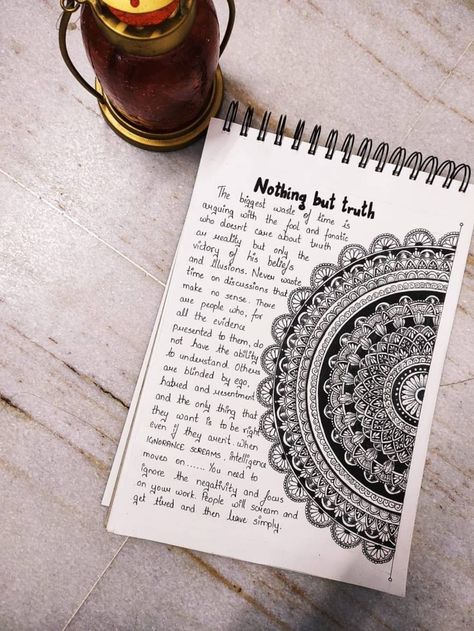 Nothing but truth
The biggest waste of time is
arguing with the fool and fanatic
who doesn't care about truth
or reality but only the
victory of his beliefs
and illusions. Never waste
time on discussions that
make no sense. There
are people who, for
all the evidence
presented to them, do
not have the ability
to understand. Others
are blinded by ego,
hatred and resentment
and the only thing that
they want is to be right
even if they aren't. When
IGNORANCE SCREAMS, intelligence
moves on ...... You need to
ignore the negativity and focus
on your work. People will scream and
get tired and then leave simply.